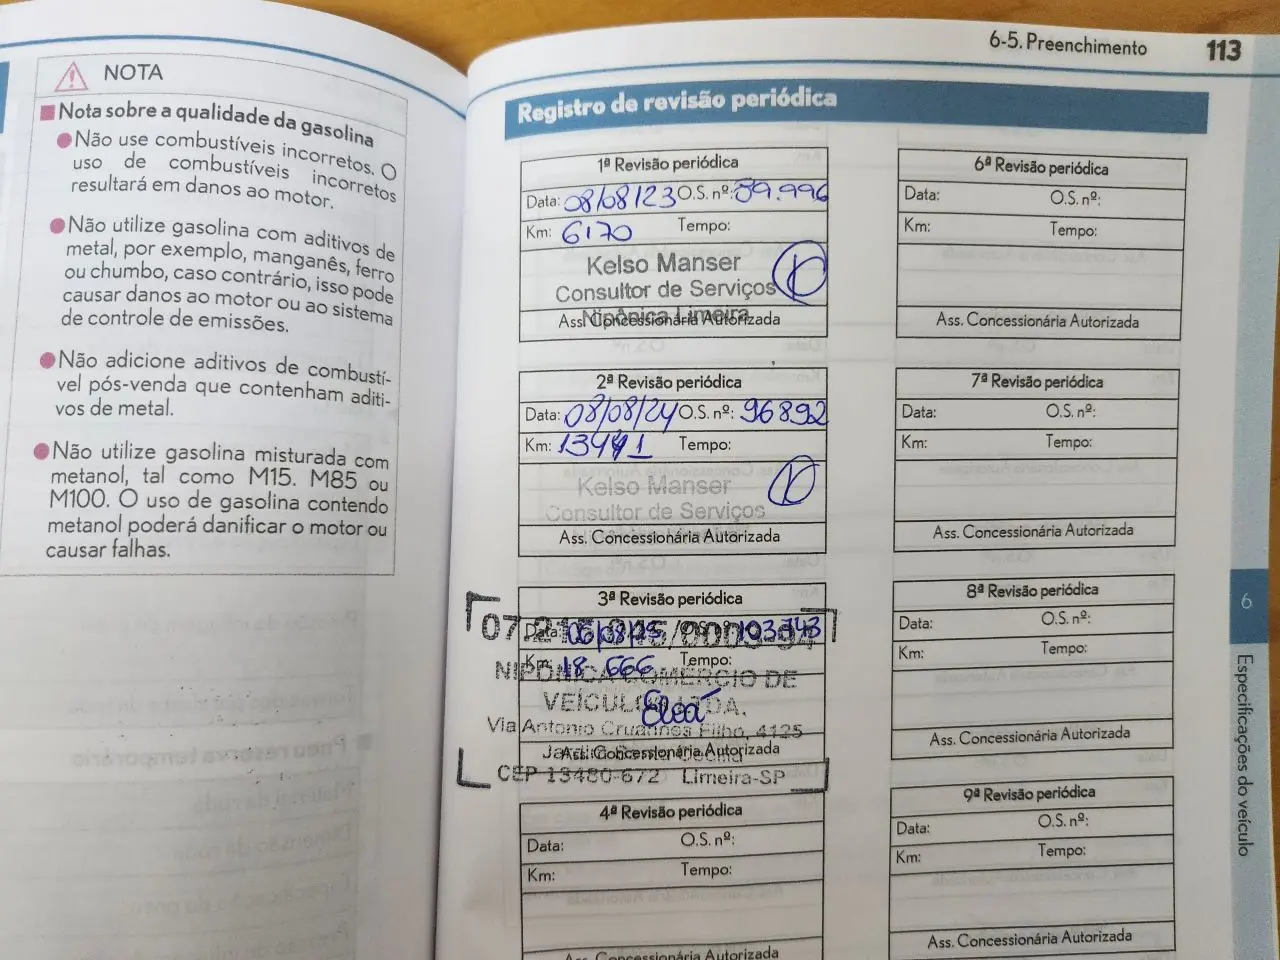 NOTA
Nota sobre a qualidade da gasolina
Não use combustíveis incorretos. O
uso de combustíveis incorretos
resultará em danos ao motor.
Não utilize gasolina com aditivos de
metal, por exemplo, manganês, ferro
ou chumbo, caso contrário, isso pode
causar danos ao motor ou ao sistema
de controle de emissões.
Não adicione aditivos de combustí-
vel pós-venda que contenham aditi-
vos de metal.
Não utilize gasolina misturada com
metanol, tal como M15. M85 ou
M100. O uso de gasolina contendo
metanol poderá danificar o motor ou
causar falhas.
6-5. Preenchimento 113
Registro de revisão periódica
1ª Revisão periódica
Data: 08/08/23 O.S. nº: 89.996
Km: 6170 Tempo:
Kelso Manser
Consultor de Serviços
Nipônica Limeira
Ass. Concessionária Autorizada
2ª Revisão periódica
Data: 08/08/24 O.S. nº: 96892
Km: 13441 Tempo:
Kelso Manser
Consultor de Serviços
Ass. Concessionária Autorizada
3ª Revisão periódica
Data: 06/08/25 O.S. nº: 103.743
Km: 18.666 Tempo:
NIPÔNICA COMERCIO DE
VEÍCULOS LTDA.
Via Antonio Cruannes Filho, 4125
Ass. Concessionária Autorizada
CEP 13480-672 Limeira-SP
4ª Revisão periódica
Data: O.S. nº:
Km: Tempo:
Ass. Concessionária Autorizada
6ª Revisão periódica
Data: O.S. nº:
Km: Tempo:
Ass. Concessionária Autorizada
7ª Revisão periódica
Data: O.S. nº:
Km: Tempo:
Ass. Concessionária Autorizada
8ª Revisão periódica
Data: O.S. nº:
Km: Tempo:
Ass. Concessionária Autorizada
9ª Revisão periódica
Data: O.S. nº:
Km: Tempo:
Ass. Concessionária Autorizada
6
Especificações do veículo